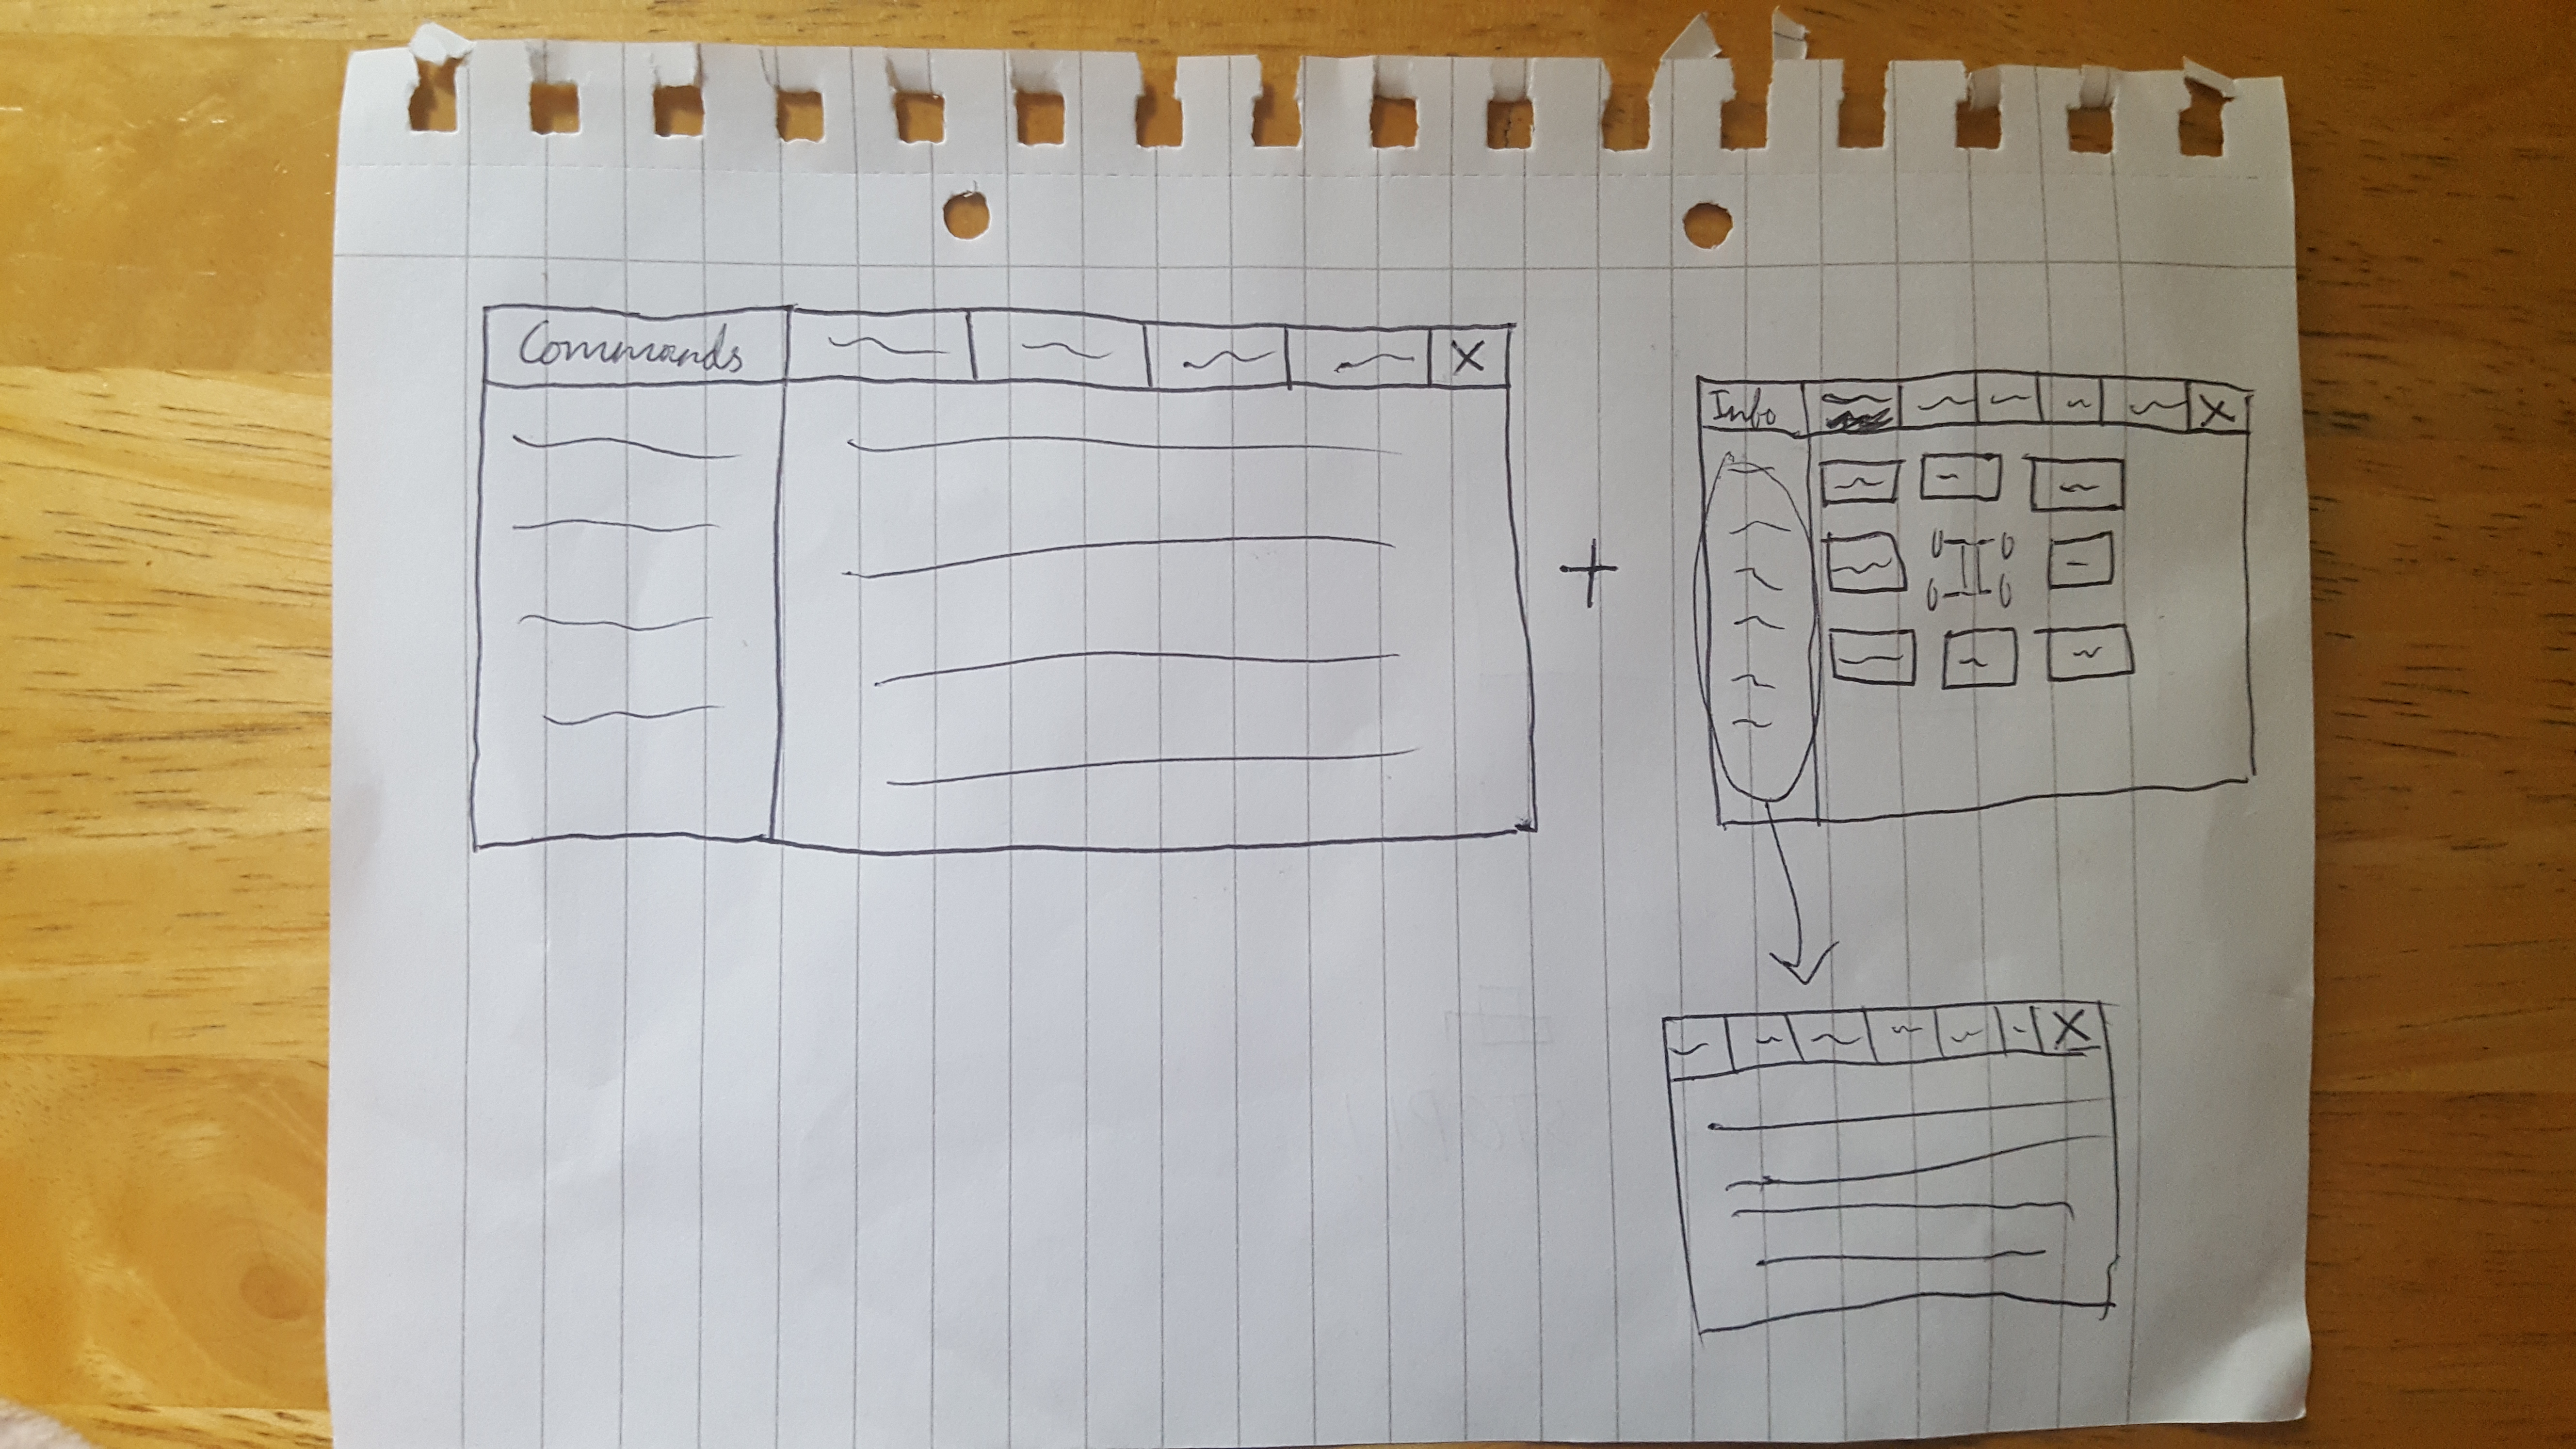 Commands
X
+
Info
X
X